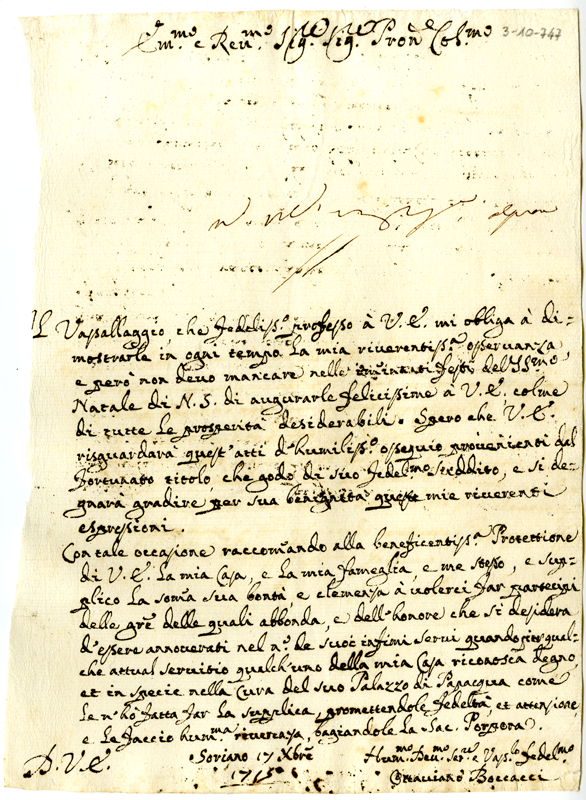 Em.mo e Reu.mo Sig.re Sig.re Pron.e Col.mo
3-10-747
Il Vassallaggio, che fedeliss.o professo à V.E. mi obliga à di=
mostrarle in ogni tempo la mia riuerentiss.a osseruanza,
e però non deuo mancare nelle imminenti feste del SS.mo
Natale di N.S. di augurarle felicissime à V.E., colme
di tutte le prosperità desiderabili. Spero che V.E.
risguardarà quest'atti d'humiliss.o ossequio prouenienti dal
fortunato titolo che godo di suo fedel.mo suddito, e si de=
gnarà gradire per sua benignità queste mie riuerenti
espressioni.
Con tale occasione raccomando alla beneficentiss.a Protettione
di V.E. la mia Casa, e la mia fameglia, e me stesso, e sup=
plico la som̃a sua bontà e clemenza à volerci far partecipi
delle gr̃e delle quali abbonda, e dell'honore che si desidera
d'essere annouerati nel n.o de suoi infimi serui quando per qual=
che attual seruitio qualch'uno della mia Casa riconosca degno,
et in specie nella Cura del suo Palazzo di Papacqua come
le n'hò fatta far la supplica, promettendole fedeltà, et attensione
e le faccio hum.ma riuerenza, bagiandole la Sac. Porpora.
Soriano 17 Xbre
1715
D.V.E.
Hum.mo Deu.mo Ser.re e Vas.lo fedel.mo
Ottauiano Boccacci